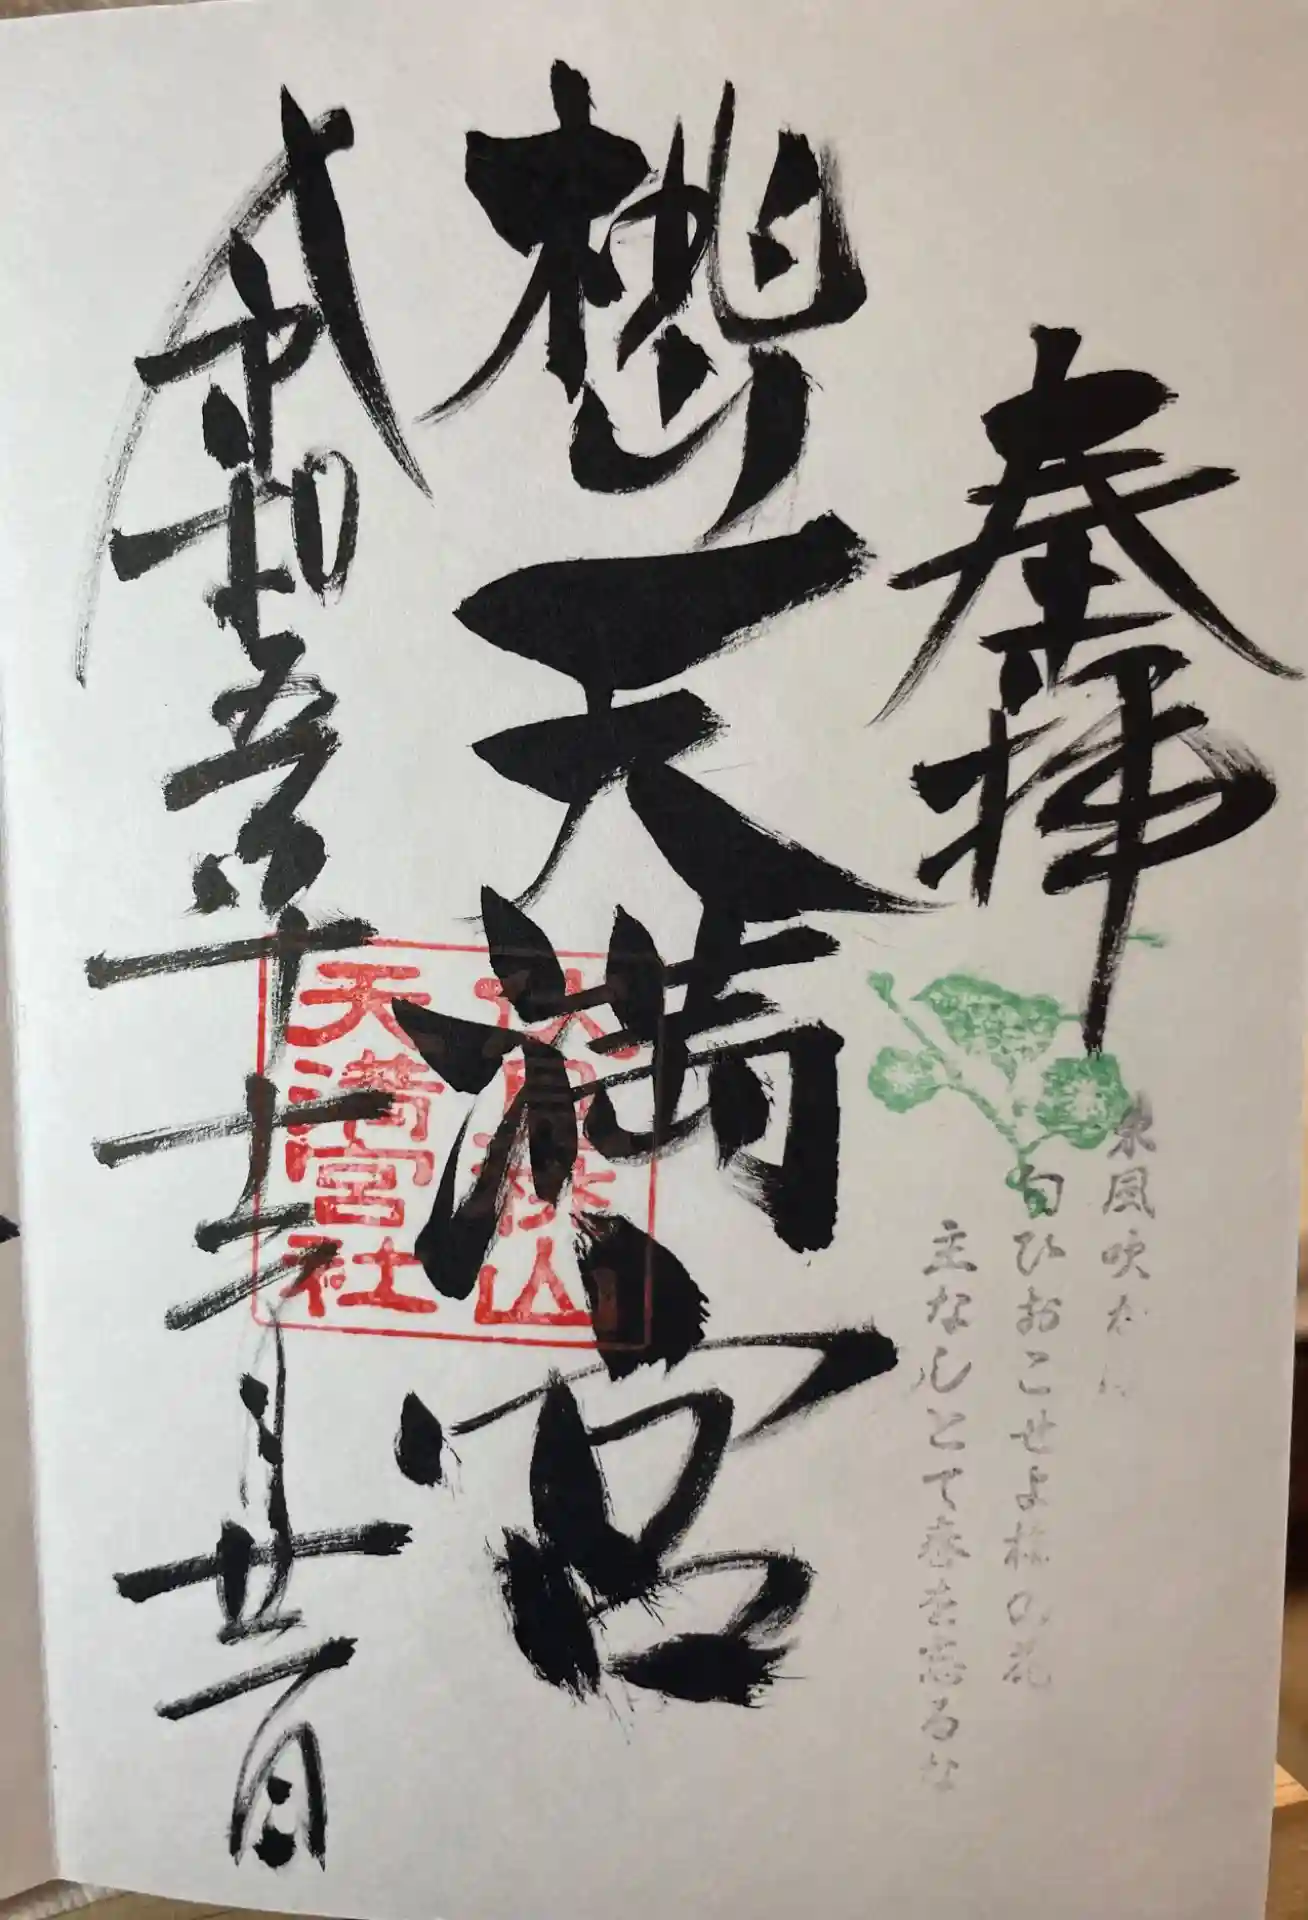 奉拝
東風吹か
匂ひおこせよ梅の花
主なしとて春を忘るな
天満宮
山
天満宮社
令和五年十二月廿一日